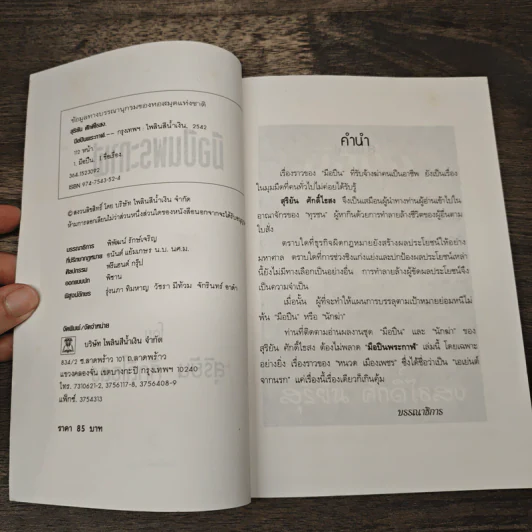 ข้อมูลทางบรรณานุกรมของหอสมุดแห่งชาติ
สุริยัน ศักดิ์ไธสง
มือปืนพระกาฬ.-- กรุงเทพฯ : ไพลินสีน้ำเงิน, 2542
หน้า
1. มือปืน. I ชื่อเรื่อง.
364.1523092
ISBN 974-7543-52-4
มือปืนพระกาฬ
© สงวนลิขสิทธิ์ โดย บริษัท ไพลินสีน้ำเงิน จำกัด
ห้ามการลอกเลียนไม่ว่าส่วนหนึ่งส่วนใดของหนังสือนอกจากจะได้รับอนุญาต
บรรณาธิการ พิพัฒน์ รักษ์เจริญ
ที่ปรึกษากฎหมาย ธนันต์ แย้มเกษร น.บ. นศ.ม.
ศิลปกรรม ฟรีแฮนด์ กรุ๊ป
ออกแบบปก พิชาน
พิสูจน์อักษร รุ่งนภา ทิมหาญ วัชรา มีท้วม จักรินทร์ ชาคำ
จัดพิมพ์/จัดจำหน่าย
บริษัท ไพลินสีน้ำเงิน จำกัด
834/2 ซ.ลาดพร้าว 101 ถ.ลาดพร้าว
แขวงคลองจั่น เขตบางกะปิ กรุงเทพฯ 10240
โทร. 7310621-2, 3756117-8, 3756408-9
แฟ็กซ์. 3754313
ราคา 85 บาท
คำนำ
เรื่องราวของ "มือปืน" ที่รับจ้างฆ่าคนเป็นอาชีพ ยังเป็นเรื่อง
ในมุมมืดที่คนทั่วไปไม่ค่อยได้รับรู้
สุริยัน ศักดิ์ไธสง จึงเป็นเสมือนผู้นำทางท่านผู้อ่านเข้าไปใน
อาณาจักรของ "ทุรชน" ผู้หากินด้วยการทำลายล้างชีวิตของผู้อื่นตาม
ใบสั่ง
ตราบใดที่ธุรกิจผิดกฎหมายยังสร้างผลประโยชน์ให้อย่าง
มหาศาล ตราบใดที่การช่วงชิงแก่งแย่งและปกป้องผลประโยชน์เหล่า
นี้ยังไม่มีทางเลือกเป็นอย่างอื่น การทำลายล้างผู้ขัดผลประโยชน์จึง
เป็นความจำเป็น
เมื่อนั้น ผู้ที่จะทำให้แผนการบรรลุตามเป้าหมายย่อมหนีไม่
พ้น "มือปืน" หรือ "นักฆ่า"
ท่านที่ติดตามอ่านผลงานชุด "มือปืน" และ "นักฆ่า" ของ
สุริยัน ศักดิ์ไธสง ต้องไม่พลาด "มือปืนพระกาฬ" เล่มนี้ โดยเฉพาะ
อย่างยิ่ง เรื่องราวของ "หนวด เมืองเพชร" ซึ่งได้ชื่อว่าเป็น "เอเย่นต์
จากนรก" แค่เรื่องนี้เรื่องเดียวก็เกินคุ้ม
สุริยัน ศักดิ์ไธสง
บรรณาธิการ